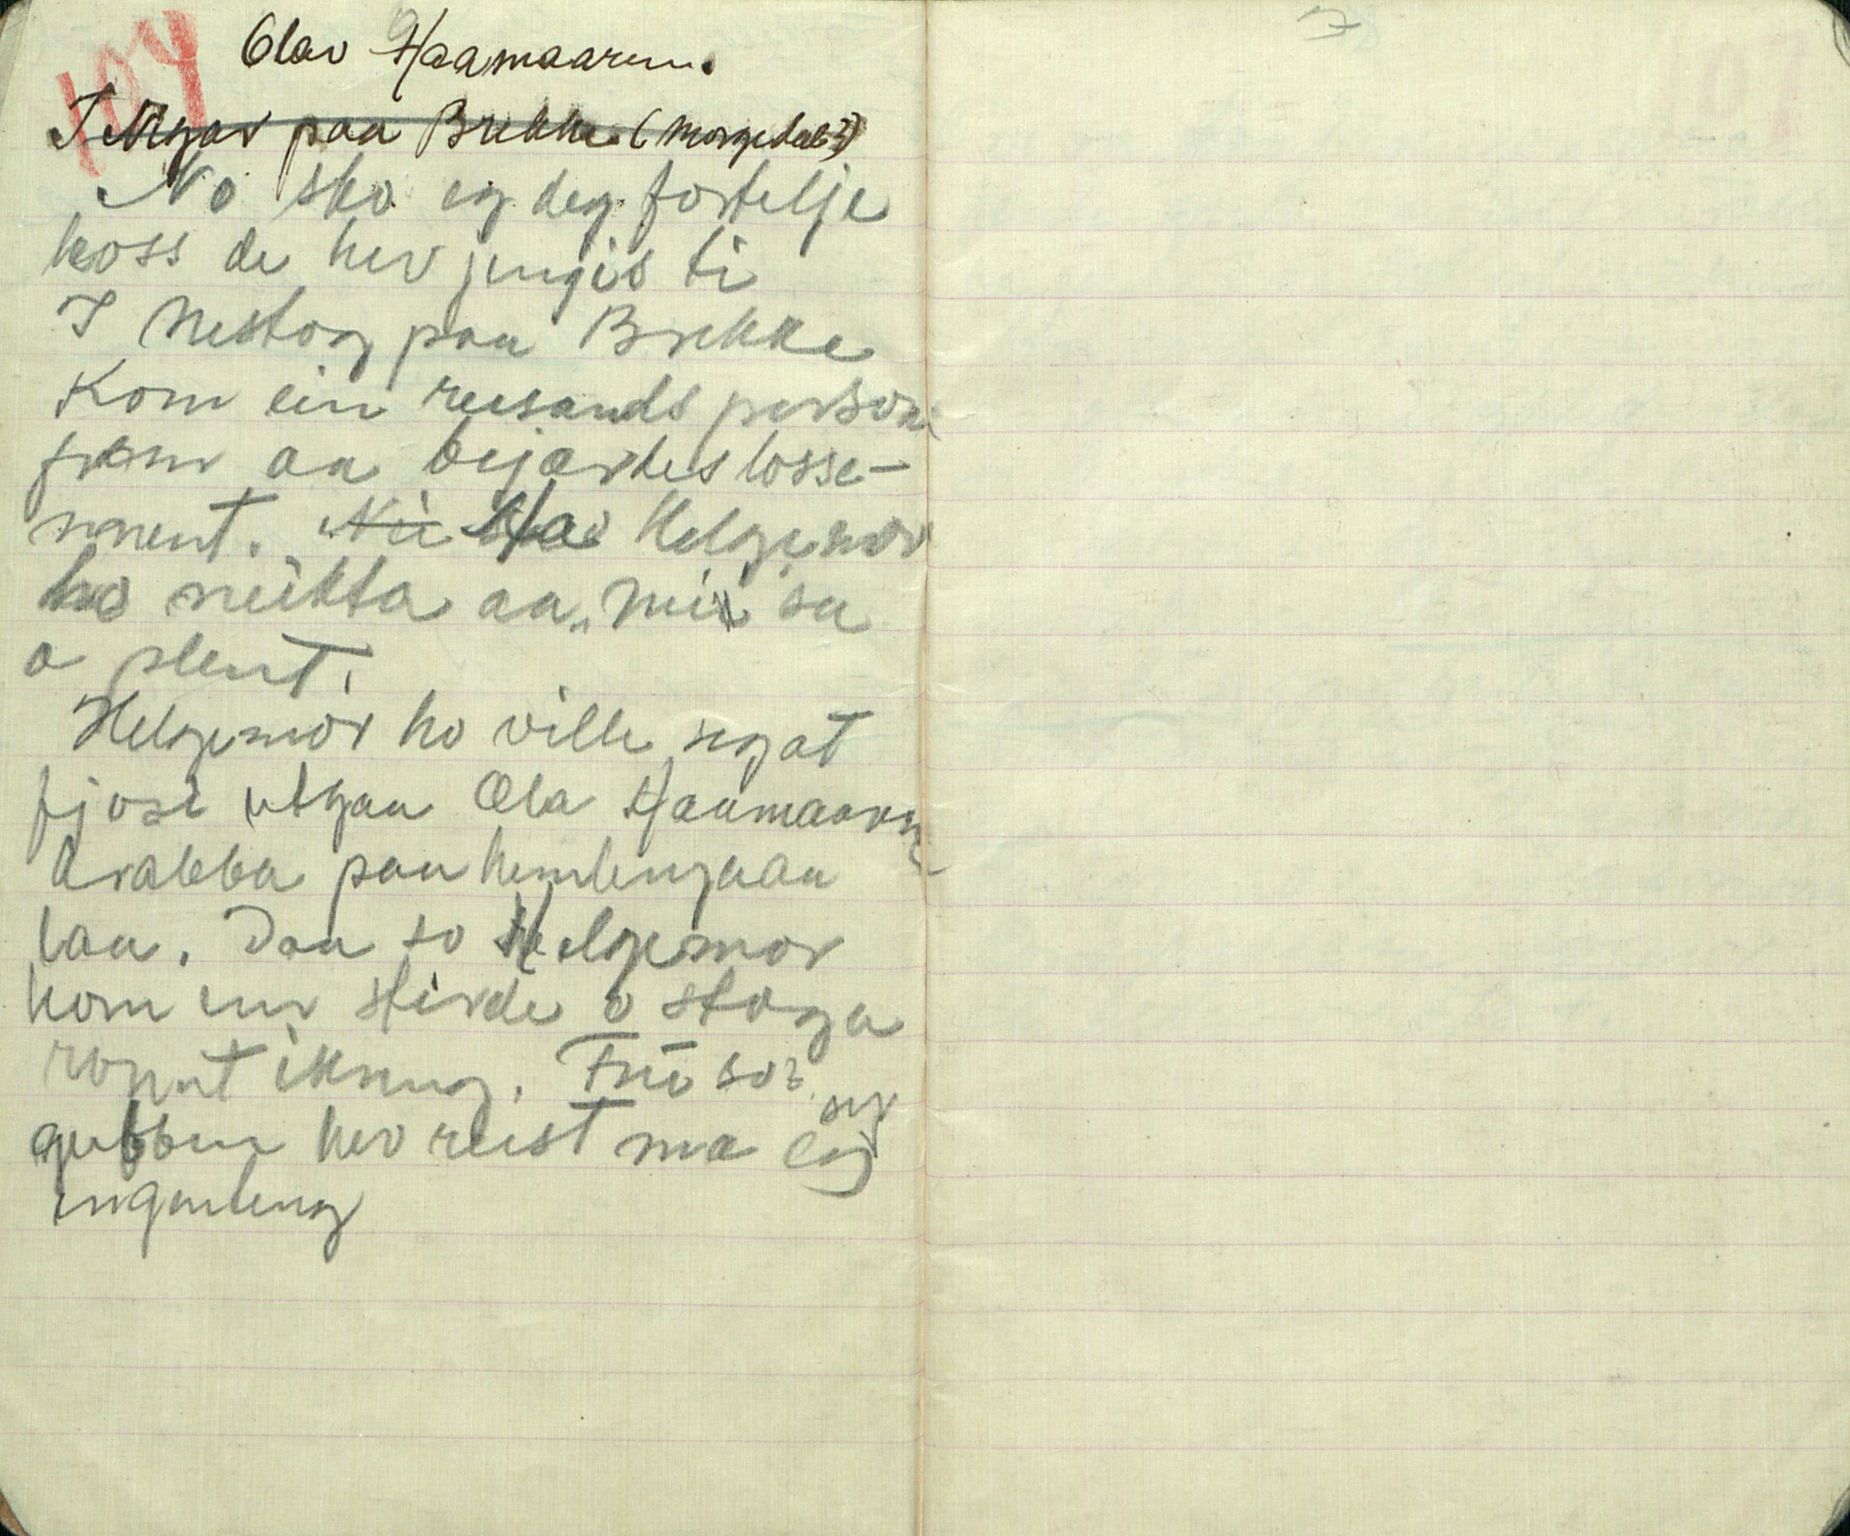 104
Olav Haamaaren.
I Nigar paa Brekke (Morgedal?)
No sko eg deg fortelje
koss de hev jengis ti
I Nestog paa Brekke
Kom ein reisands person
fram aa bejærtes losse-
ment. Nei Helgemor
ho neikta aa "nei" sa
o slent.
Helgemor ho ville segat
fjose utgaa Ola Haamaaren
drabba paa hemlengaaa
laa. Daa so Helgemor
kom inn stirde o stoga
ropat ikring. Fui so?
gubben hev reist mæ seg
ingenleng